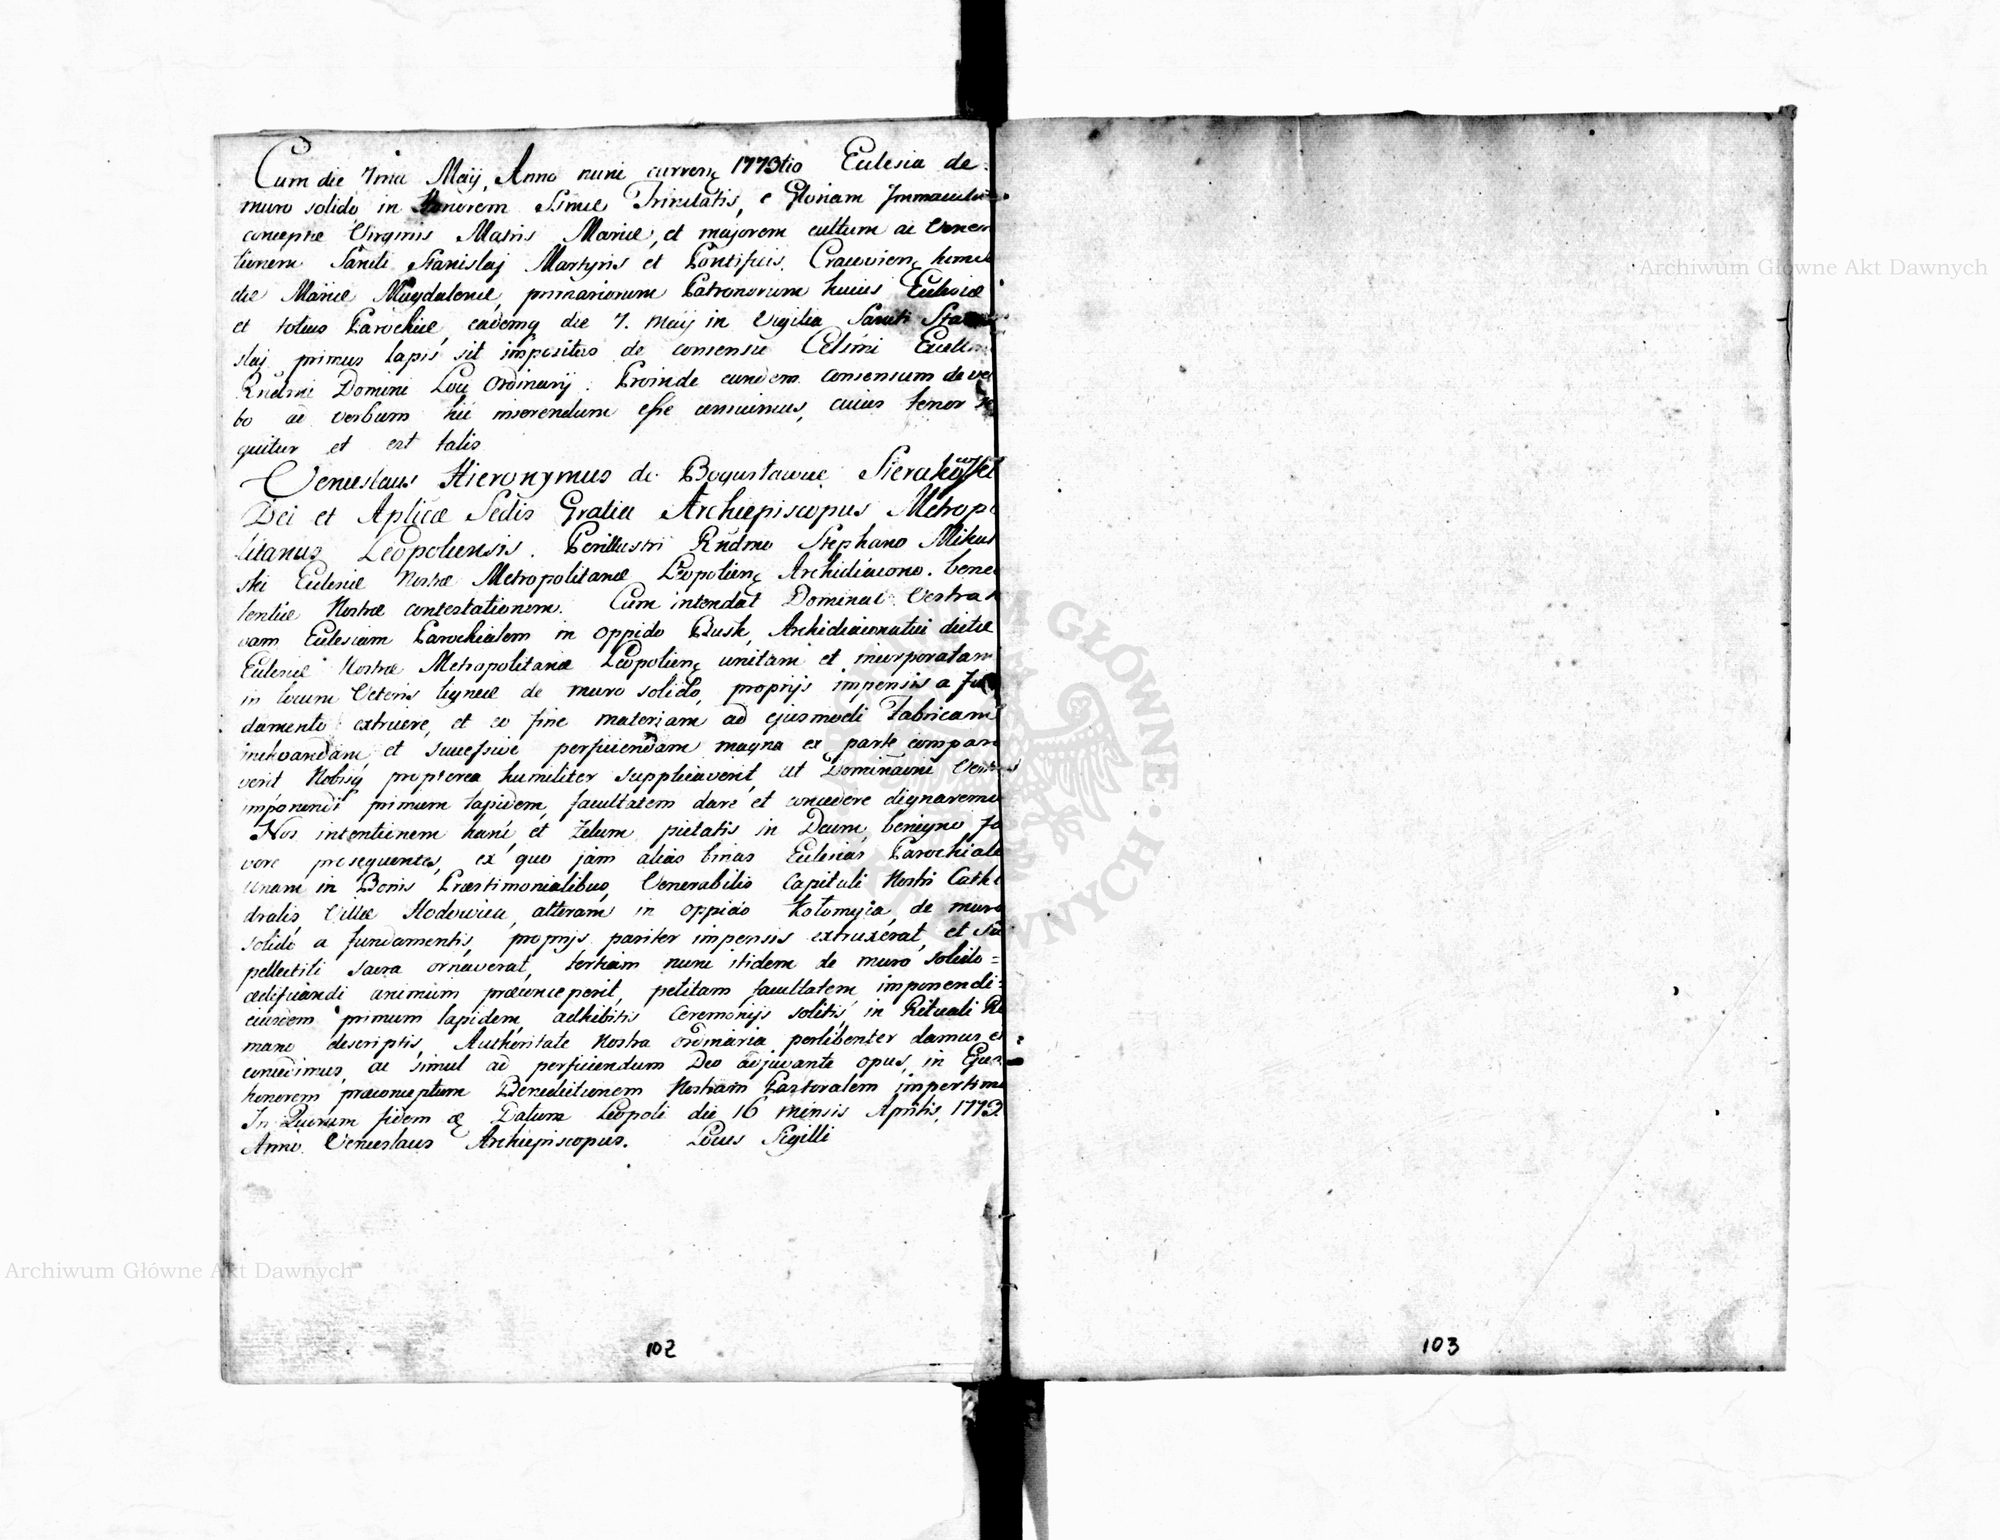 Cum die 7ma Maij, Anno nunc curren. 1773tio Ecclesia de
muro solido in Honorem SSmae Trinitatis, et Gloriam Immacula
conceptae Virginis Matris Mariae, et majorem cultum ac Venera
tionem Sancti Stanislaj Martyris et Pontificis Cracovien.
die Mariae Magdalenae, primariorum Patronorum huius Ecclesiae
et totius Parochiae, eademq die 7. Maij in Vigilia Sancti Stani
slaj primus lapis sit impositus de consensu Celsmi Excellmi
Rndmi Domini Loci Ordinarij. Proinde eundem consensum de ver
bo ad verbum hic inserendum esse censuimus, cuius tenor se
quitur et est talis
Venceslaus Hieronymus de Boguslawice Sierakowski
Dei et Aplicae Sedis Gratia Archiepiscopus Metropo
litanus Leopoliensis. Perillustri Rndmo Stephano Mikul
ski Ecclesiae Nostrae Metropolitanae Leopolien. Archidiacono. bene
lentiae Nostrae contestationem. Cum intendat Dominat. Vestra no
vam Ecclesiam Parochialem in oppido Busk, Archidiaconatui dictae
Ecclesiae Nostrae Metropolitanae Leopolien. unitam et incorporatam
in locum Veteris ligneae de muro solido, proprijs impensis a Fun
damento extruere, et eo fine materiam ad ejusmodi Fabricam
inchoandam, et successive perficiendam magna ex parte compara
verit Nobisq propterea humiliter supplicaverit, ut Dominaoni Vestrae
imponendi primum lapidem, facultatem dare et concedere dignaremur
Nos intentionem hanc et Zelum pietatis in Deum, benigno fa
vore prosequentes, ex quo jam alias binas Ecclesias Parochiale
unam in Bonis Praestimonialibus, Venerabilis Capituli Nostri Cathe
dralis, Villae Hodowica, alteram in oppido Kołomyia, de muro
solido a fundamentis, proprijs pariter impensis extruxerat, et su
pellectili sacra ornaverat, tertiam nunc itidem de muro solido=
aedificandi animum praeconceperit, petitam facultatem imponendi=
eiusdem primum lapidem, adhibitis Ceremonijs solitis, in Rituali Ro
mano descriptis, Authoritate Nostra ordinaria perlibenter damus et
concedimus, ac simul ad perficiendum Deo adjuvante opus, in Ejus
honorem praeconceptum Benedictionem Nostram Pastoralem impertimu
In Quorum fidem &c Datum Leopoli die 16 mensis Aprilis, 1773
Anno. Venceslaus Archiepiscopus. Locus Sigilli
102
103
Archiwum Główne Akt Dawnych
Archiwum Główne Akt Dawnych